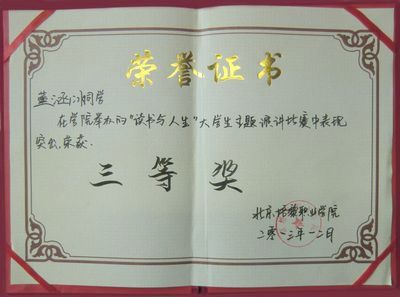 荣誉证书
蓝涵同学
在学院举办的"读书与人生"大学生主题演讲比赛中表现
突出,荣获
三等奖
北京培黎职业学院
二零一二年一二月